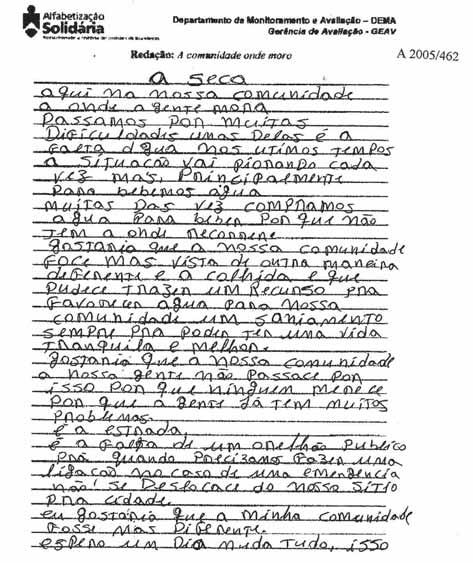 Alfabetização
Solidária
Departamento de Monitoramento e Avaliação – DEMA
Gerência de Avaliação - GEAV
Redação: A comunidade onde moro
A 2005/462
A seca
aqui na nossa comunidade
a onde agente mora
Passamos por muitas
Dificuldades umas Delas é a
falta dgua nos utimos tempos
a situacão vai piorando cada
vez mas, Principalmente
Para bebemos água
muitas das vez compramos
agua Para beber Por que não
tem a onde recorrere
gostaria que a nossa comunidade
foce mas vista de outra maneira
diferente e a colhida e que
pudece trazer um Recurso pra
favorecer agua para nossa
comunidade um saniamento
sempre pra poder ter uma vida
tranquila e melhor.
gostaria que a nossa comunidade
a nossa gente não passace por
isso por que ninguem merece
por que a gente já tem muitos
problemas.
e a estrada,
é a falta de um orelhão Publico
Pra quando Precizamos fazer uma
ligacão no caso de uma emergência
não! se Deslocace do nosso sitio
pra cidade.
eu gostaria que a minha comunidade
fosse mas Diferente.
espero um Dia muda tudo, isso